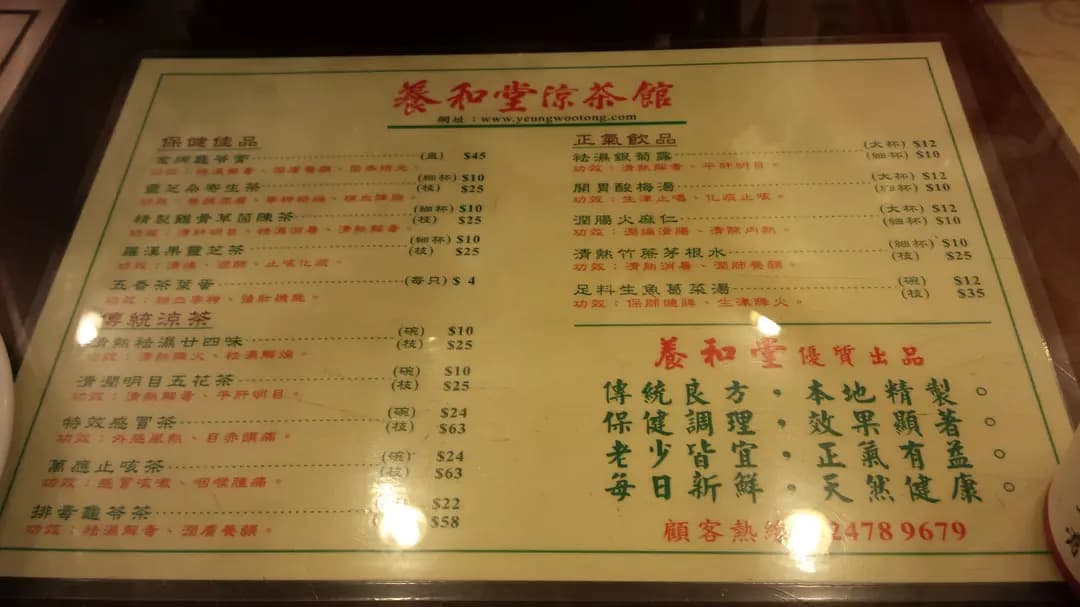 養和堂涼茶館
網址：www.yeungwootong.com
保健佳品
龜苓膏 (盅) $45
靈芝桑寄生茶 (細杯) $10
(枝) $25
精製雞骨草茵陳茶 (細杯) $10
(枝) $25
功效：清肝明目、祛濕消暑、清熱解毒。
羅漢果靈芝茶 (細杯) $10
(枝) $25
功效：清痰、止咳化痰。
五香茶葉蛋 (每只) $4
傳統涼茶
清熱祛濕廿四味 (碗) $10
(枝) $25
功效：清熱降火、祛濕解燥。
清潤明目五花茶 (碗) $10
(枝) $25
功效：清熱解毒、平肝明目。
特效感冒茶 (碗) $24
(枝) $63
功效：外感風熱、目赤頭痛。
萬應止咳茶 (碗) $24
(枝) $63
功效：感冒咳嗽、咽喉腫痛。
排毒龜苓茶 $22
$58
功效：祛濕解毒、潤膚養顏。
正氣飲品
祛濕銀菊露 (大杯) $12
(細杯) $10
功效：清熱解毒、平肝明目。
開胃酸梅湯 (大杯) $12
(細杯) $10
功效：生津止渴、化痰止咳。
潤腸火麻仁 (大杯) $12
(細杯) $10
功效：潤燥滑腸、清除內熱。
清熱竹蔗茅根水 (細杯) $10
(枝) $25
功效：清熱消暑、潤肺養顏。
足料生魚葛菜湯 (碗) $12
(枝) $35
功效：保肺健脾、生津降火。
養和堂優質出品
傳統良方，本地精製。
保健調理，效果顯著。
老少皆宜，正氣有益。
每日新鮮，天然健康。
顧客熱線 2478 9679